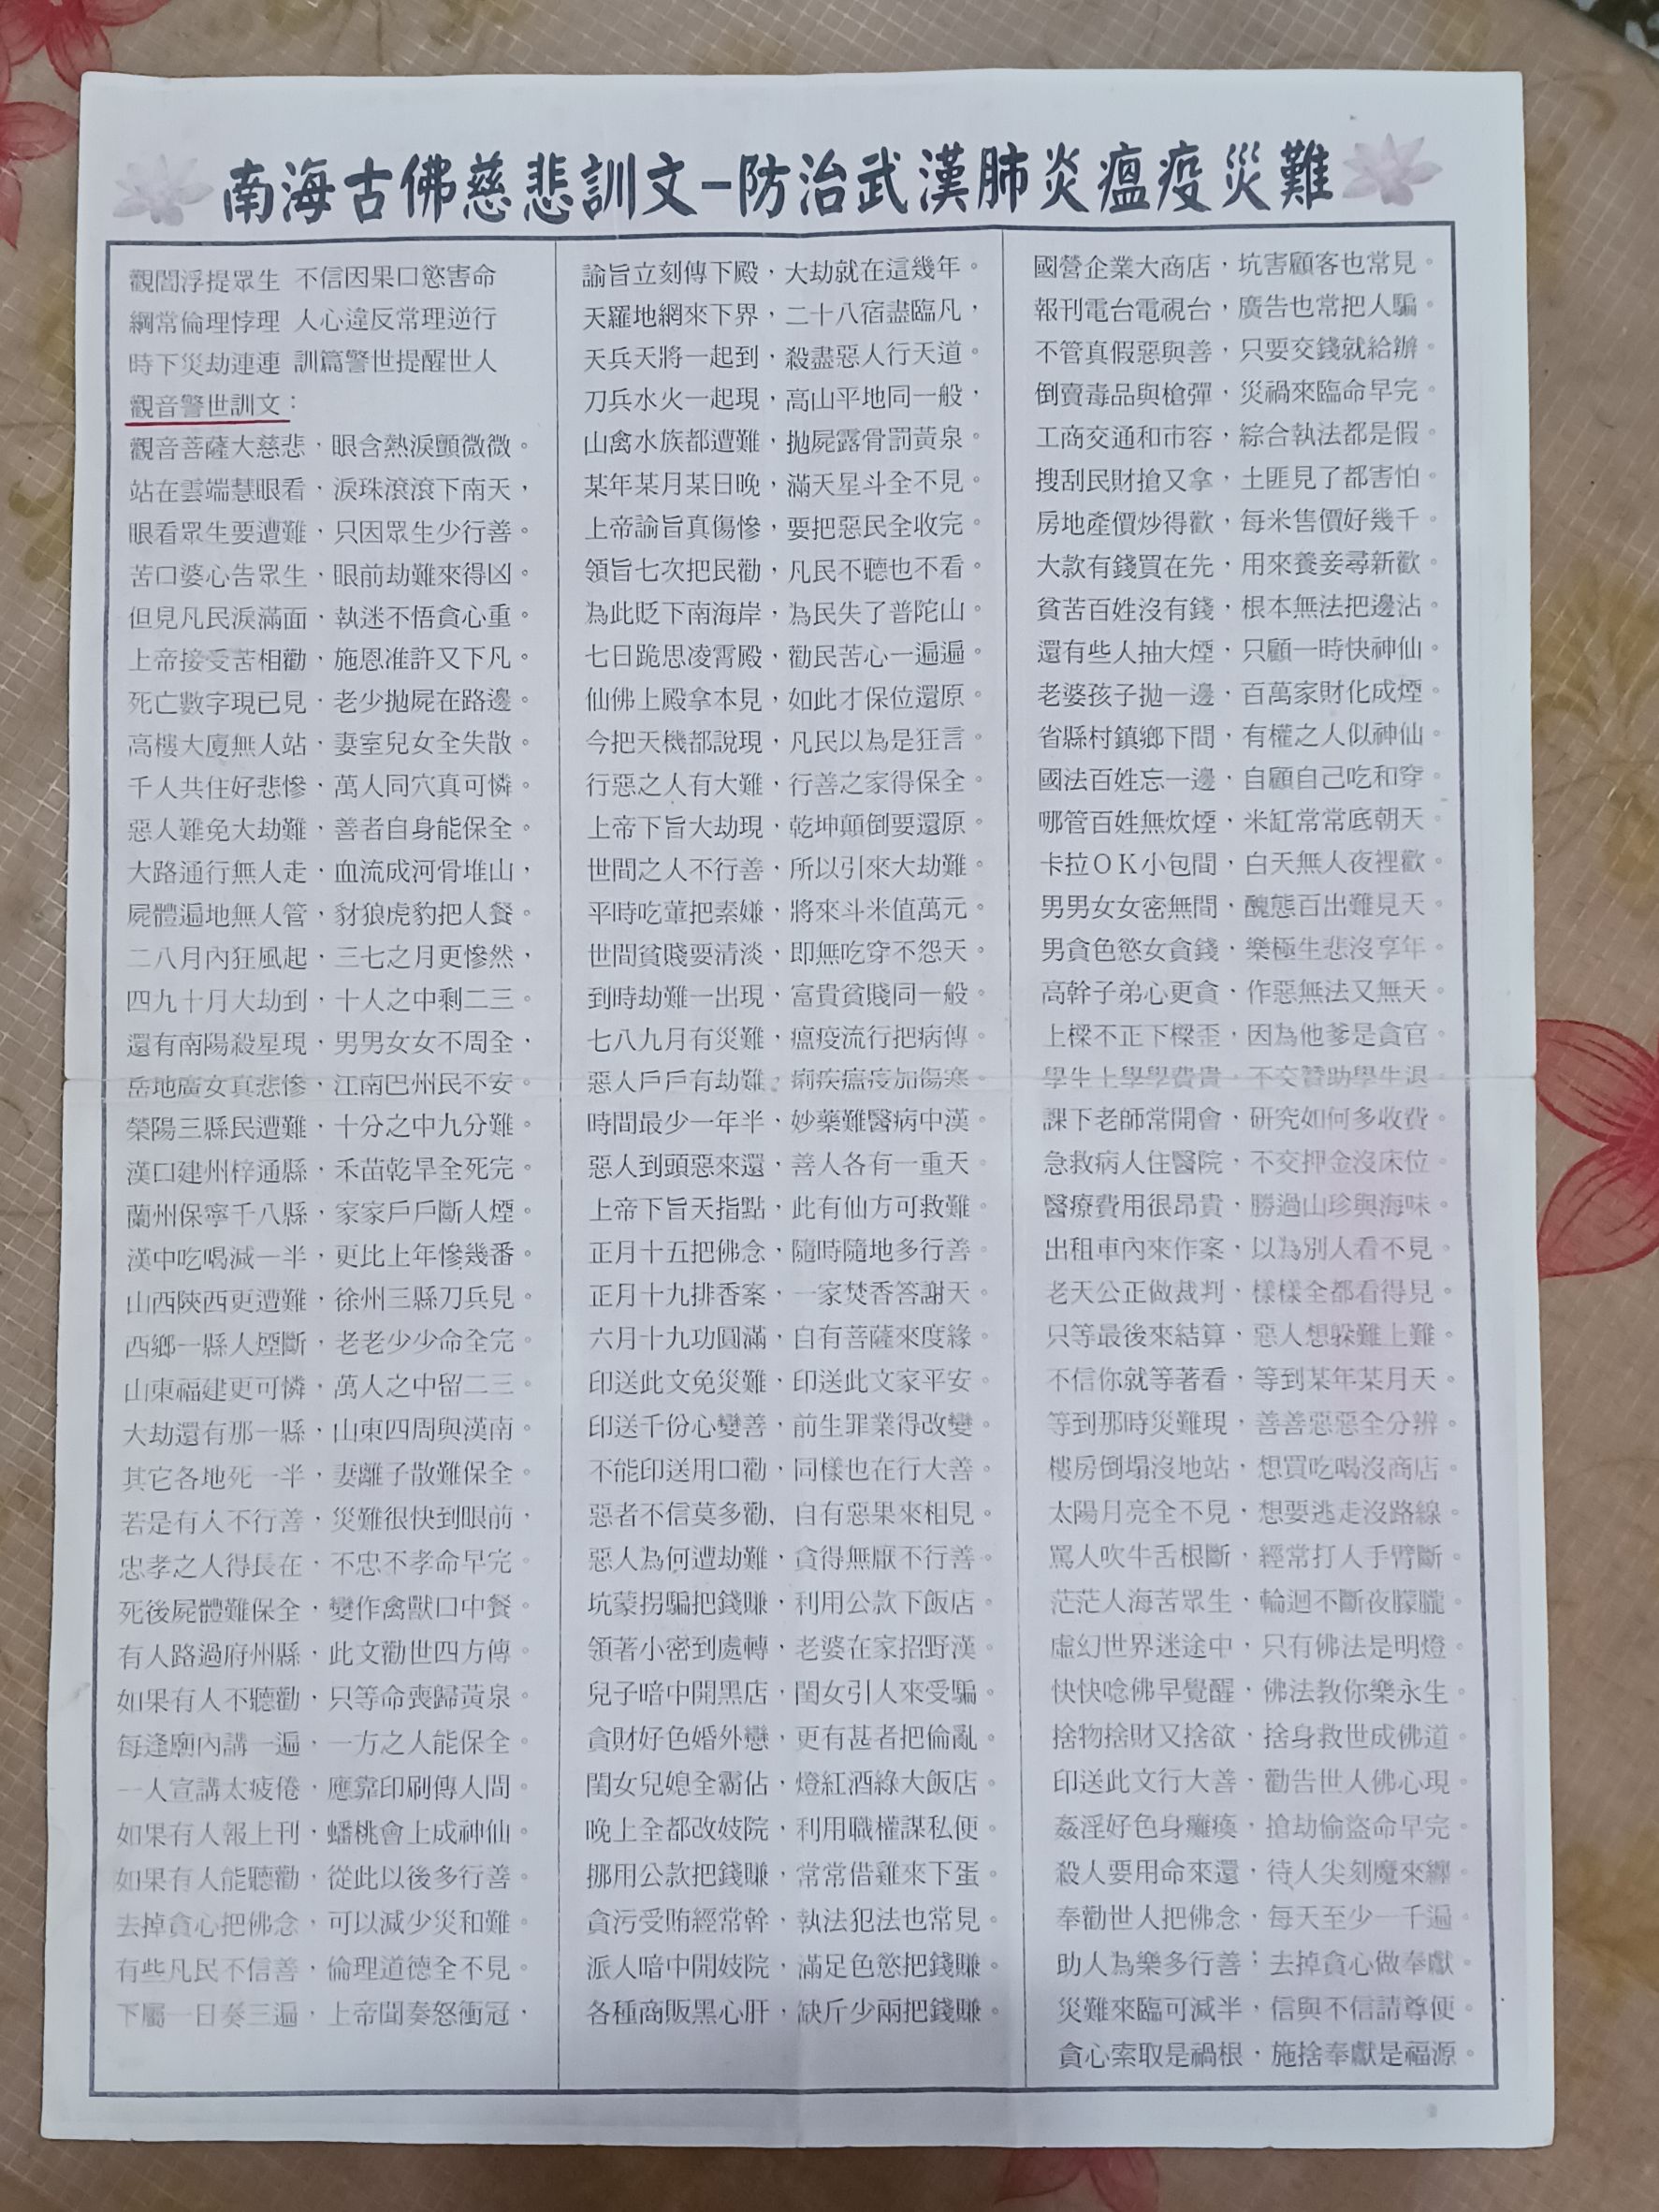 南海古佛慈悲訓文-防治武漢肺炎瘟疫災難
觀閻浮提眾生 不信因果口慾害命
綱常倫理悖理 人心違反常理逆行
時下災劫連連 訓篇警世提醒世人
觀音警世訓文：
觀音菩薩大慈悲，眼含熱淚顫微微。
站在雲端慧眼看，淚珠滾滾下南天，
眼看眾生要遭難，只因眾生少行善。
苦口婆心告眾生，眼前劫難來得凶。
但見凡民淚滿面，執迷不悟貪心重。
上帝接受苦相勸，施恩准許又下凡。
死亡數字現已見，老少拋屍在路邊。
高樓大廈無人站，妻室兒女全失散。
千人共住好悲慘，萬人同穴真可憐。
惡人難免大劫難，善者自身能保全。
大路通行無人走，血流成河骨堆山，
屍體遍地無人管，豺狼虎豹把人餐。
二八月內狂風起，三七之月更慘然，
四九十月大劫到，十人之中剩二三。
還有南陽殺星現，男男女女不周全，
岳地廣女真悲慘，江南巴州民不安。
榮陽三縣民遭難，十分之中九分難。
漢口建州梓通縣，禾苗乾旱全死完。
蘭州保寧千八縣，家家戶戶斷人煙。
漢中吃喝減一半，更比上年慘幾番。
山西陝西更遭難，徐州三縣刀兵見。
西鄉一縣人煙斷，老老少少命全完。
山東福建更可憐，萬人之中留二三。
大劫還有那一縣，山東四周與漢南。
其它各地死一半，妻離子散難保全。
若是有人不行善，災難很快到眼前，
忠孝之人得長在，不忠不孝命早完。
死後屍體難保全，變作禽獸口中餐。
有人路過府州縣，此文勸世四方傳。
如果有人不聽勸，只等命喪歸黃泉。
每逢廟內講一遍，一方之人能保全。
一人宣講太疲倦，應靠印刷傳人間。
如果有人報上刊，蟠桃會上成神仙。
如果有人能聽勸，從此以後多行善。
去掉貪心把佛念，可以減少災和難。
有些凡民不信善，倫理道德全不見。
下屬一日奏三遍，上帝聞奏怒衝冠，
諭旨立刻傳下殿，大劫就在這幾年。
天羅地網來下界，二十八宿盡臨凡，
天兵天將一起到，殺盡惡人行天道。
刀兵水火一起現，高山平地同一般，
山禽水族都遭難，拋屍露骨罰黃泉。
某年某月某日晚，滿天星斗全不見。
上帝諭旨真傷慘，要把惡民全收完。
領旨七次把民勸，凡民不聽也不看。
為此貶下南海岸，為民失了普陀山。
七日跪思凌霄殿，勸民苦心一遍遍。
仙佛上殿拿本見，如此才保位還原。
今把天機都說現，凡民以為是狂言。
行惡之人有大難，行善之家得保全。
上帝下旨大劫現，乾坤顛倒要還原。
世間之人不行善，所以引來大劫難。
平時吃葷把素嫌，將來斗米值萬元。
世間貧賤要清淡，即無吃穿不怨天。
到時劫難一出現，富貴貧賤同一般。
七八九月有災難，瘟疫流行把病傳。
惡人戶戶有劫難，痢疾瘟疫加傷寒。
時間最少一年半，妙藥難醫病中漢。
惡人到頭惡來還，善人各有一重天。
上帝下旨天指點，此有仙方可救難。
正月十五把佛念，隨時隨地多行善。
正月十九排香案，一家焚香答謝天。
六月十九功圓滿，自有菩薩來度緣。
印送此文免災難，印送此文家平安。
印送千份心變善，前生罪業得改變。
不能印送用口勸，同樣也在行大善。
惡者不信莫多勸，自有惡果來相見。
惡人為何遭劫難，貪得無厭不行善。
坑蒙拐騙把錢賺，利用公款下飯店。
領著小密到處轉，老婆在家招野漢。
兒子喑中開黑店，閨女引人來受騙。
貪財好色婚外戀，更有甚者把倫亂。
閨女兒媳全霸佔，燈紅酒綠大飯店。
晚上全都改妓院，利用職權謀私便。
挪用公款把錢賺，常常借雞來下蛋。
貪污受賄經常幹，執法犯法也常見。
派人喑中開妓院，滿足色慾把錢賺。
各種商販黑心肝，缺斤少兩把錢賺。
國營企業大商店，坑害顧客也常見。
報刊電台電視台，廣告也常把人騙。
不管真假惡與善，只要交錢就給辦。
倒賣毒品與槍彈，災禍來臨命早完。
工商交通和市容，綜合執法都是假。
搜刮民財搶又拿，土匪見了都害怕。
房地產價炒得歡，每米售價好幾千。
大款有錢買在先，用來養妾尋新歡。
貧苦百姓沒有錢，根本無法把邊沾。
還有些人抽大煙，只顧一時快神仙。
老婆孩子拋一邊，百萬家財化成煙。
省縣村鎮鄉下間，有權之人似神仙。
國法百姓忘一邊，自顧自己吃和穿。
哪管百姓無炊煙，米缸常常底朝天。
卡拉ＯＫ小包間，白天無人夜裡歡。
男男女女密無間，醜態百出難見天。
男貪色慾女貪錢，樂極生悲沒享年。
高幹子弟心更貪，作惡無法又無天。
上樑不正下樑歪，因為他爹是貪官。
學生上學學費貴，不交贊助學生退。
課下老師常開會，研究如何多收費。
急救病人住醫院，不交押金沒床位。
醫療費用很昂貴，勝過山珍與海味。
出租車內來作案，以為別人看不見。
老天公正做裁判，樣樣全都看得見。
只等最後來結算，惡人想躲難上難。
不信你就等著看，等到某年某月天。
等到那時災難現，善善惡惡全分辨。
樓房倒塌沒地站，想買吃喝沒商店。
太陽月亮全不見，想要逃走沒路線。
罵人吹牛舌根斷，經常打人手臂斷。
茫茫人海苦眾生，輪迴不斷夜朦朧。
虛幻世界迷途中，只有佛法是明燈。
快快唸佛早覺醒，佛法教你樂永生。
捨物捨財又捨欲，捨身救世成佛道。
印送此文行大善，勸告世人佛心現。
姦淫好色身癱瘓，搶劫偷盜命早完。
殺人要用命來還，待人尖刻魔來纏。
奉勸世人把佛念，每天至少一千遍。
助人為樂多行善；去掉貪心做奉獻。
災難來臨可減半，信與不信請尊便。
貪心索取是禍根，施捨奉獻是福源。